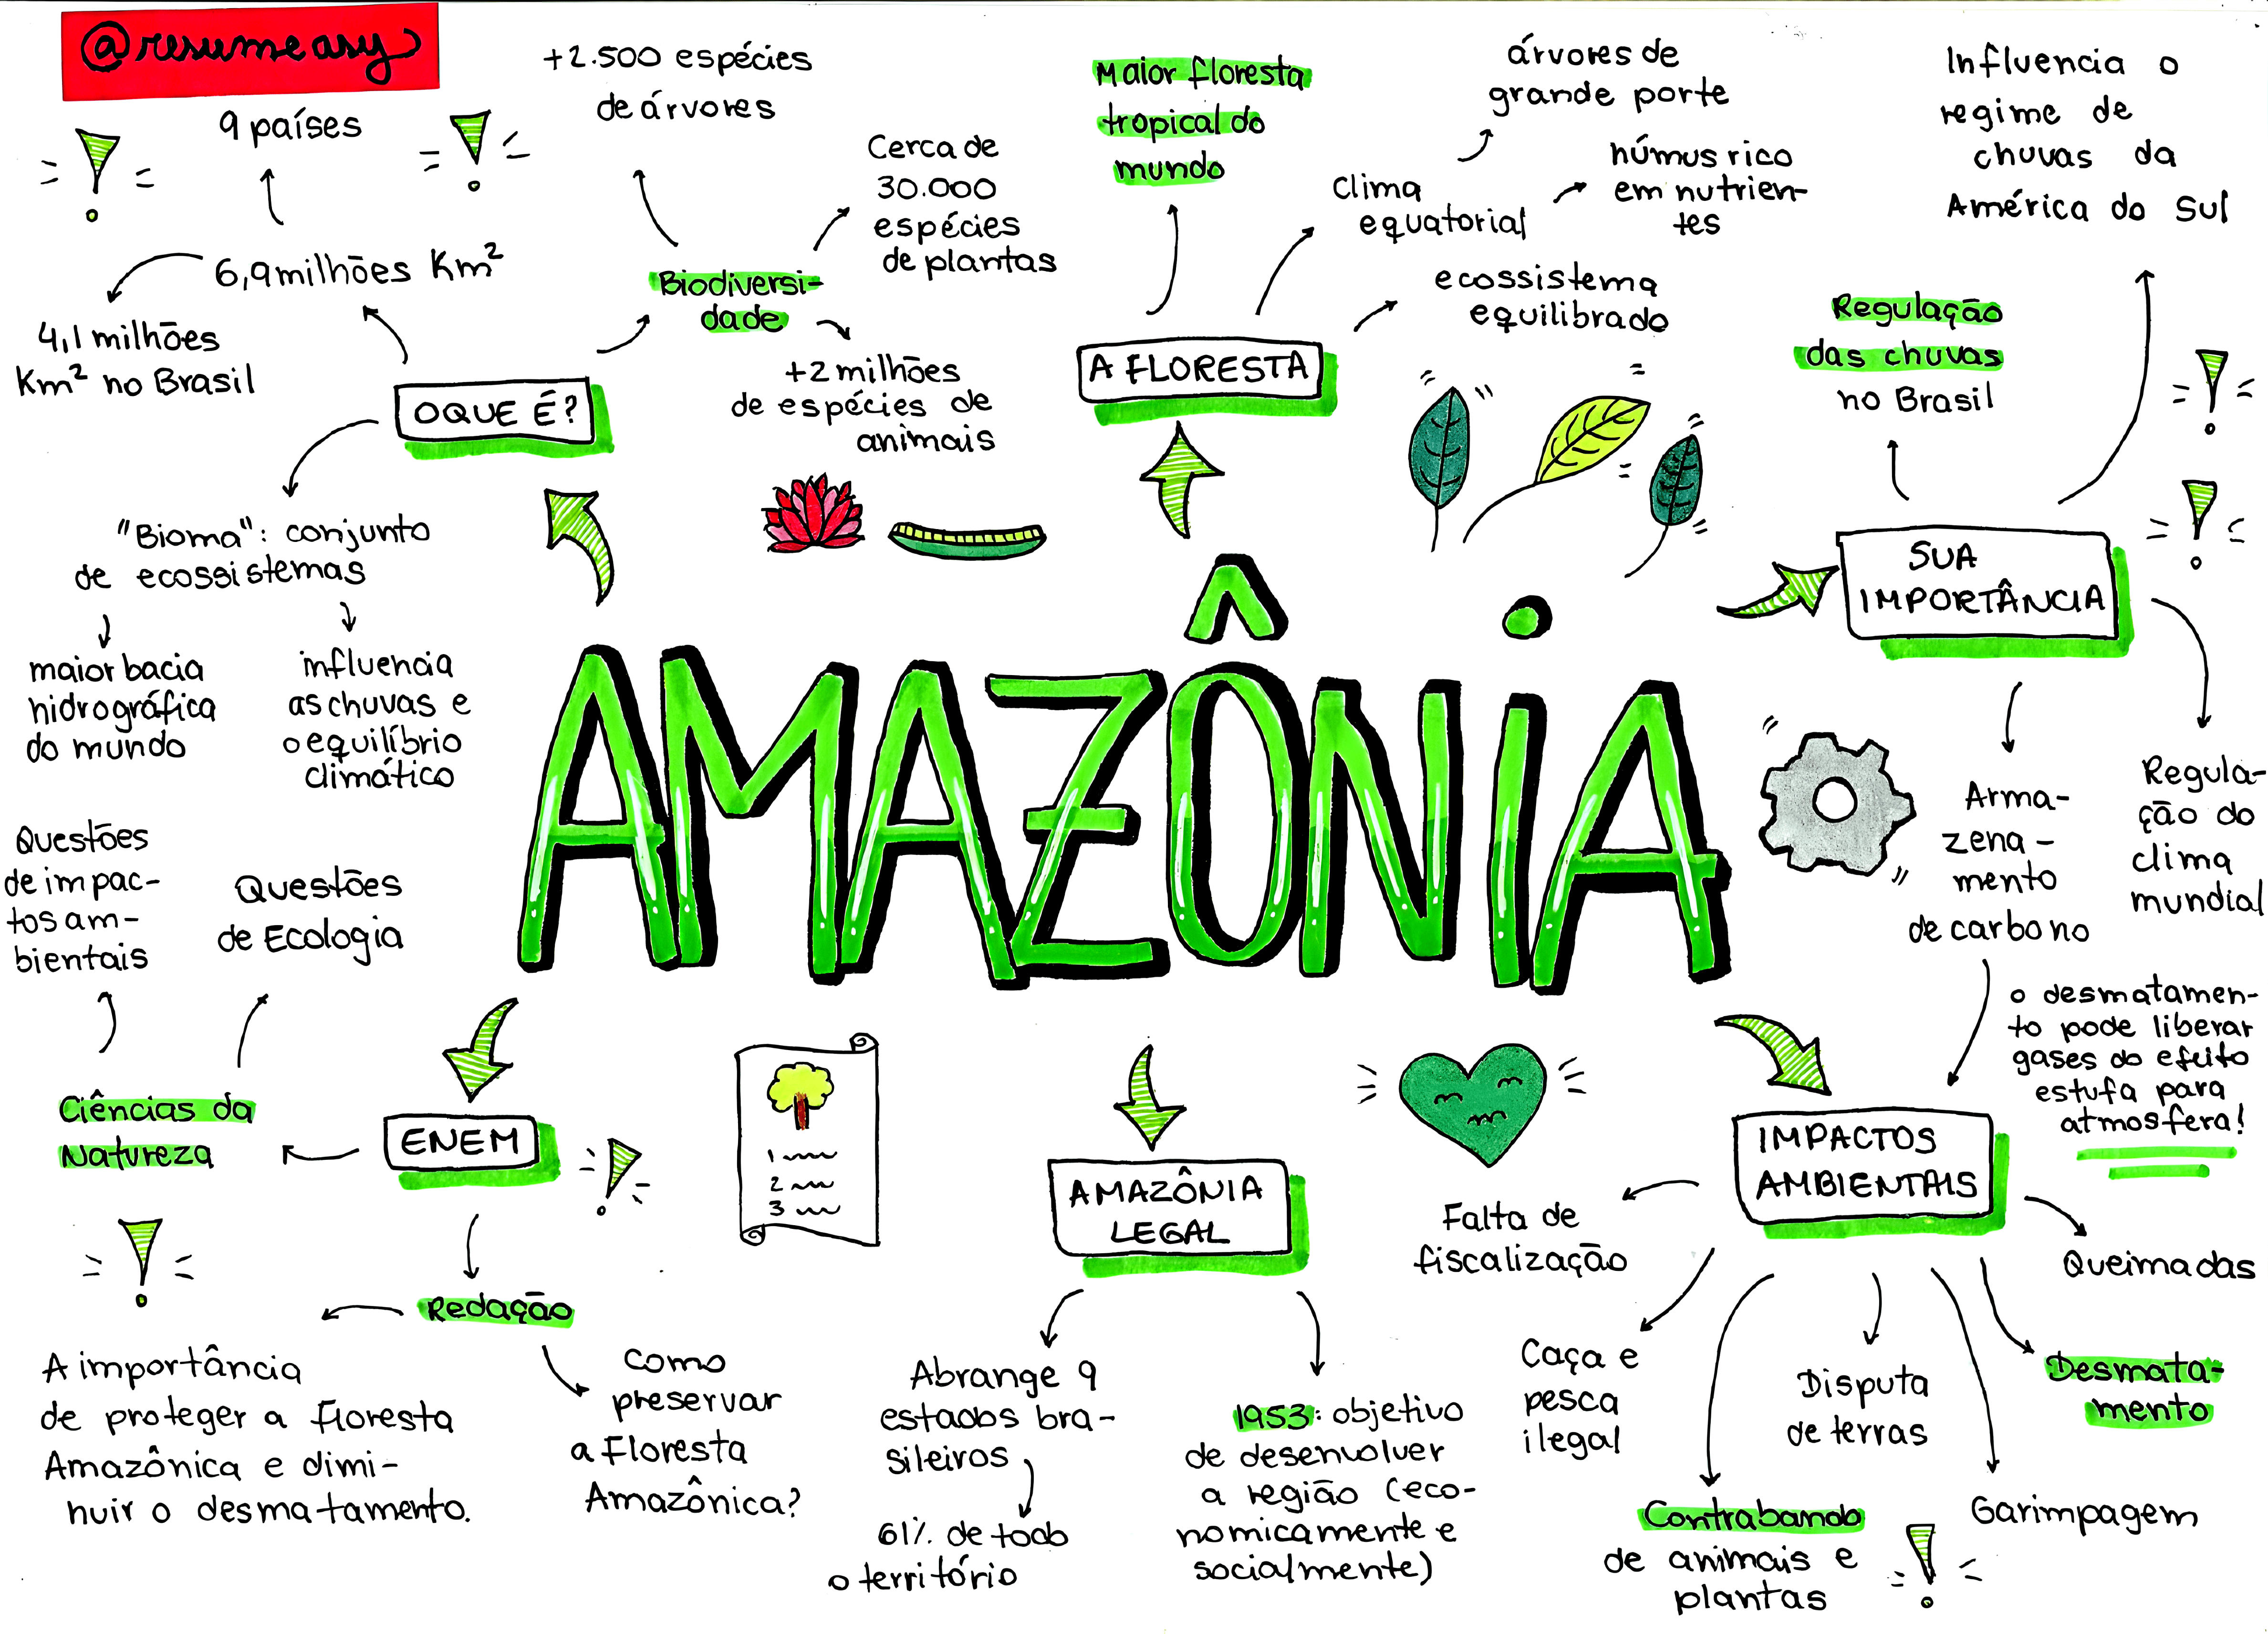 @resumeasy
9 países
6,9 milhões Km²
4,1 milhões
Km² no Brasil
OQUE É?
"Bioma": conjunto
de ecossistemas
maior bacia
hidrográfica
do mundo
influencia
as chuvas e
o equilíbrio
climático
+2.500 espécies
de árvores
Cerca de
30.000
espécies
de plantas
Biodiversi-
dade
+2 milhões
de espécies de
animais
Maior floresta
tropical do
mundo
A FLORESTA
Clima
equatorial
árvores de
grande porte
húmus rico
em nutrien-
tes
ecossistema
equilibrado
Influencia o
regime de
chuvas da
América do Sul
Regulação
das chuvas
no Brasil
SUA
IMPORTÂNCIA
Arma-
zena-
mento
de carbono
Regula-
ção do
clima
mundial
AMAZÔNiA
Questões
de impac-
tos am-
bientais
Questões
de Ecologia
Ciências da
Natureza
ENEM
Redação
A importância
de proteger a floresta
Amazônica e dimi-
nuir o desmatamento.
como
preservar
a Floresta
Amazônica?
1
2
3
AMAZÔNIA
LEGAL
Abrange 9
estados bra-
sileiros
61% de todo
o território
1953: objetivo
de desenvolver
a região (eco-
nomicamente e
socialmente)
o desmatamen-
to pode liberar
gases do efeito
estufa para
atmosfera!
IMPACTOS
AMBIENTAIS
Falta de
fiscalização
Caça e
pesca
ilegal
Contrabando
de animais e
plantas
Disputa
de terras
Garimpagem
Desmata-
mento
Queimadas